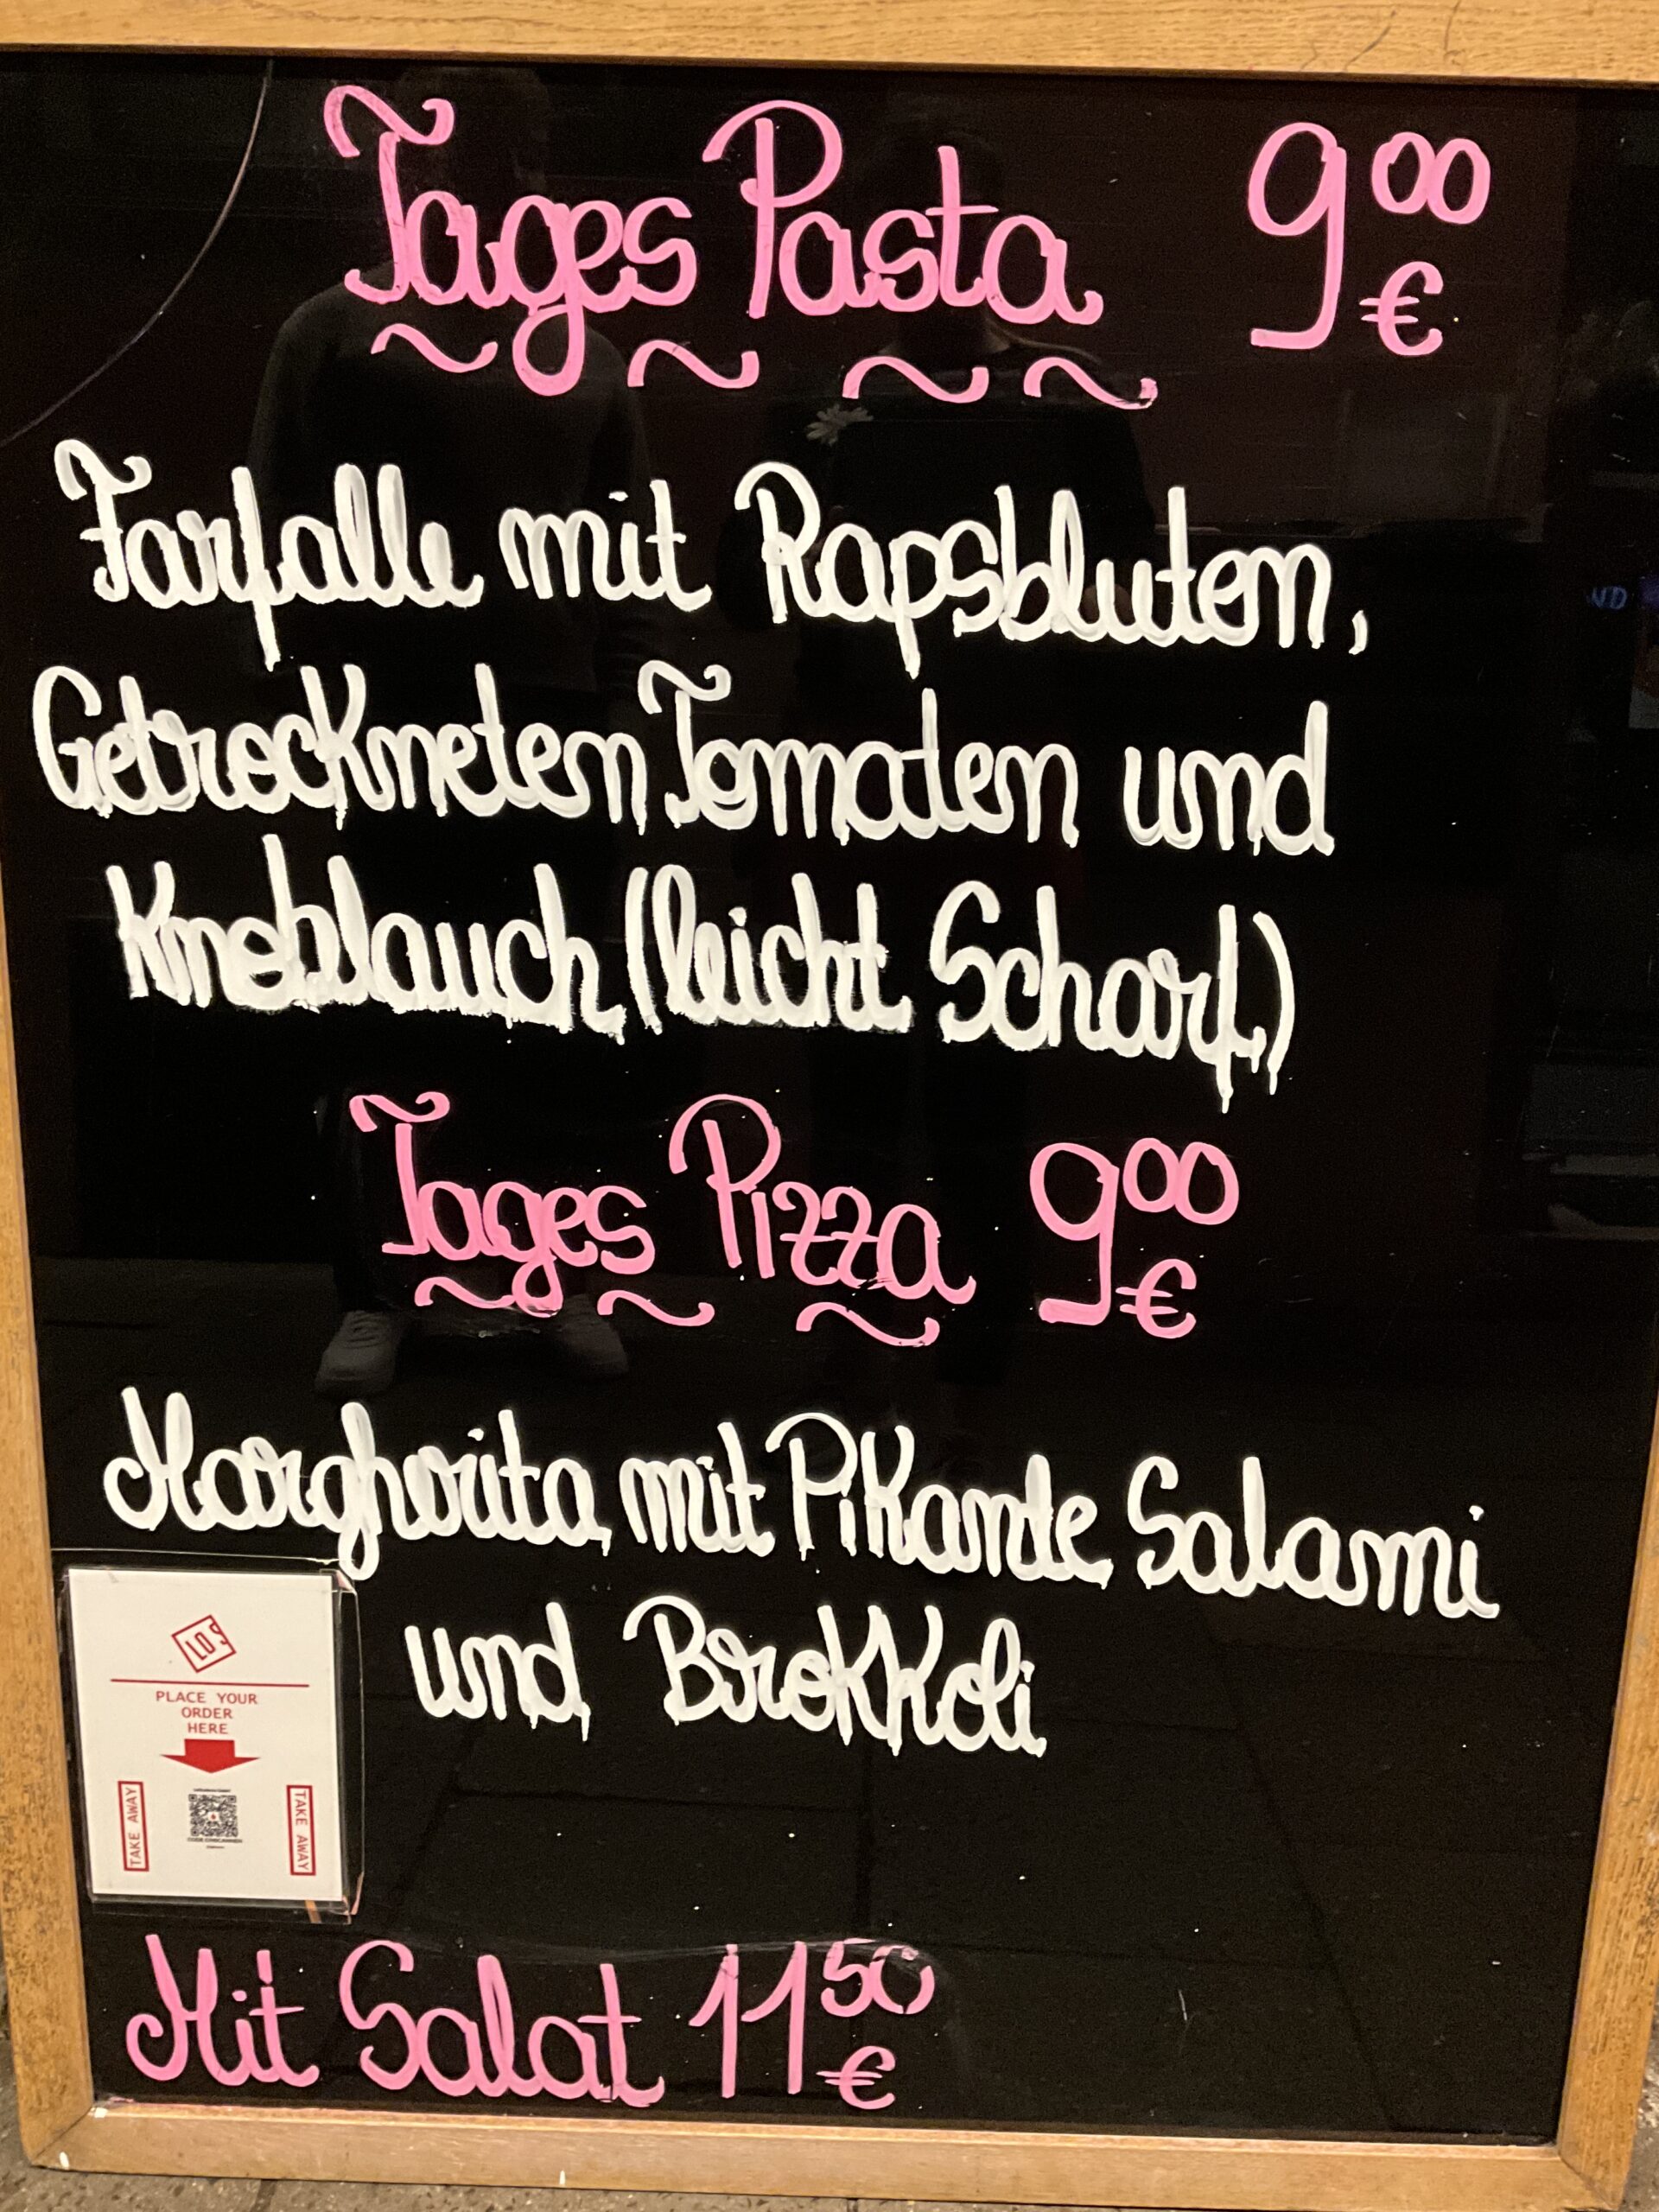 Tages Pasta 9 00 €
Farfalle mit Rapsbluten,
Getrockneten Tomaten und
Knoblauch (leicht Scharf)
Tages Pizza 9 00 €
Margherita mit Pikante Salami
und Brokkoli
LOS
PLACE YOUR
ORDER
HERE
TAKE AWAY
TAKE AWAY
Mit Salat 11 50 €